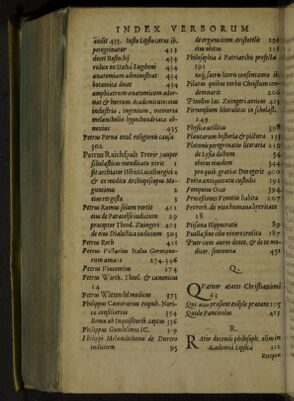 INDEX VERBORUM
audit 433. Iusto Lipsio carus ib.
peregrinatur 433
docet Rostochij 434
redux ex Italia Lugduni 434
anatomiam administrat 434
botanica docet 434
amphitheatrum anatomicum
industria, ingenium, memoria
melancholia hypochondriaca
noxius 435
Petrus Perna exul religionis causa
302
Petrus Raichspalt Trevir pauper
scholasticus mendicato vivit 1
fit architer Hērici Lucelburgici 2
& ex medico Archiepiscopus Moguntinus 2
eius res gestæ 3
Petrus Ramus solum vertit 411
eius de Paracelso iudicium 29
præceptor Theod. Zuingeri 402
de eius Dialectica iudicium 303
Petrus Roth 411
Petrus Victorius Italus
274.346
Petrus Vincentius 274
Petrus Worth. Theol. & canonicus
14
Petrus Wittendel medicus 375
Philippus Camerarius reipub.
ca consiliarius 354
Romæ ab Inquisitorib. captus 356
Philippus Gundelius IC. 319
Philippi Melanchthonis de Durero
iudicium 95
de organo item Aristotelis 196
eius obitus 116
Philosophia à Patriarchis profecta
191
sacris literis consentanea ib.
Pilatus quibus verbis Christum
demnarit 206
Pinellus Iac. Zuingeri amicus 415
249
Physicæ utilitas 398
Plantarum historia & picturæ 158
Platonis peregrinatio literaria 219
de Lysia dictum 54
obitus eiusdem 344
pro quib. gratias Deo egerit 400
Poeta antiquitatis custodes 191
Pompeius Otto 394
Processiones Venetiis habita 207
Proverb. de vita humana brevitate
18
Ptisana Hippocratis 89
Puellæ sine culo vivere credita 187
Puer cum auro dente, & de eo
dicior, sententia 452
Q.
QVatuor ætates Christianismi
65
Quies Pancirolus 415
R.
RAtio docendi philosoph. olim in
Academia Lipsica 212
Recepta